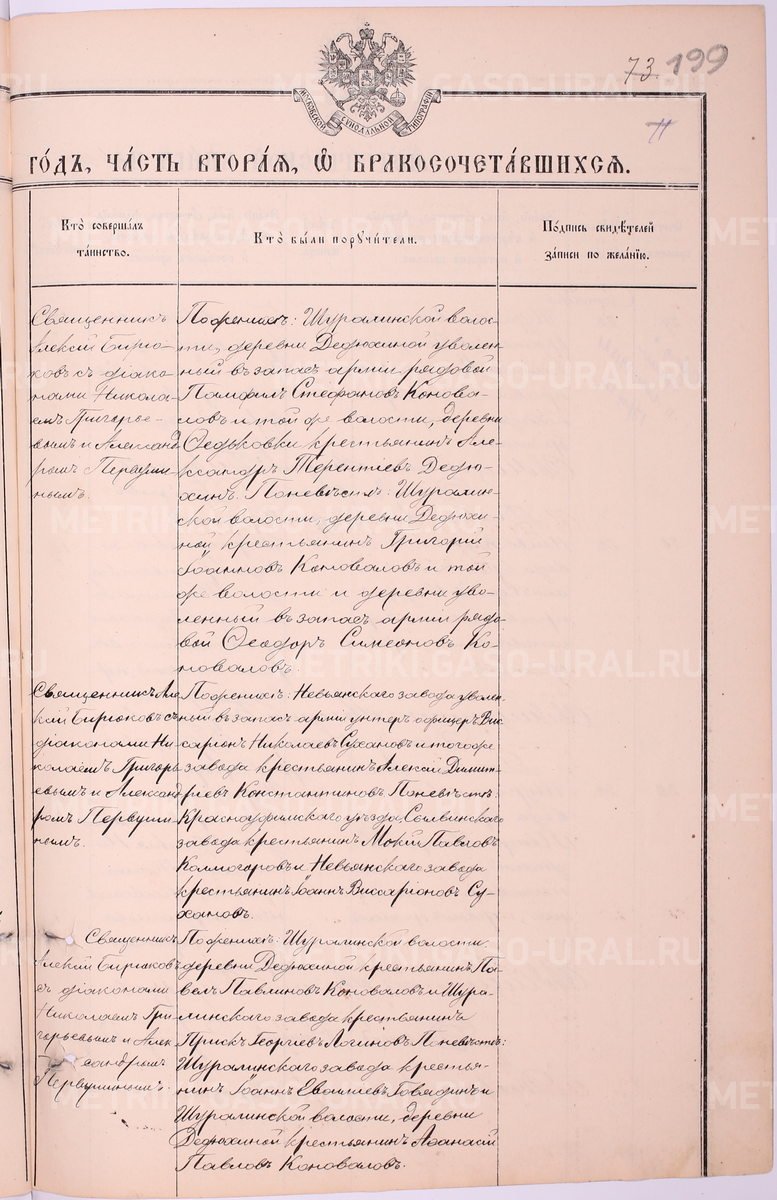 73. 199
11
МОСКОВСКОЙ СѴНОДАЛЬНОЙ ТИПОГРАФІИ
ГО́ДЪ, ЧА́СТЬ ВТОРА́Я, Ѡ БРАКОСОЧЕТА́ВШИХСЯ.
Кто̀ соверша́лъ
та́инство.
Кто̀ бы́ли поручи́тели.
По́дпись свидѣ́телей
за́писи по жела́нїю.
Священникъ
Алексій Бирю-
ковъ съ діако-
нами Никола-
емъ Григорье-
вымъ и Александ
ромъ Первуши-
нымъ.
По женихѣ: Шуралинской волос-
ти, деревни Дедюхиной уволен-
ный въ запасъ арміи рядовой
Памфилъ Стефановъ Конова-
ловъ и той же волости, деревни
Ѳедьковки крестьянинъ Але-
ксандръ Терентіевъ Дедю-
хинъ. По невѣстѣ: Шуралин-
ской волости, деревни Дедюхи-
ной крестьянинъ Григорій
Іоанновъ Коноваловъ и той
же волости и деревни уво-
ленный въ запасъ арміи рядо-
вой Ѳеодоръ Симеоновъ Ко-
новаловъ.
Священникъ Але
ксій Бирюковъ съ
діаконами Ни-
колаемъ Григорь
евымъ и Александ
ромъ Первуши-
нымъ.
По женихѣ: Невьянскаго завода уволен-
ный въ запасъ арміи унтеръ офицеръ Вис-
саріонъ Николаевъ Сухановъ и того же
завода крестьянинъ Алексій Димит-
ріевъ Константиновъ. По невѣстѣ:
Красноуфимскаго уѣзда, Сылвинскаго
завода крестьянинъ Мокій Павловъ
Колмогоровъ и Невьянскаго завода
крестьянинъ Іоаннъ Виссаріоновъ Су-
хановъ.
Священникъ
Алексій Бирюковъ
съ діаконами
Николаемъ Гри-
горьевымъ и Алек-
сандромъ
Первушинымъ.
По женихѣ: Шуралинской волости
деревни Дедюхиной крестьянинъ Па-
велъ Павлиновъ Коноваловъ и Шура-
линскаго завода крестьянинъ
Прискъ Георгіевъ Логиновъ. По невѣстѣ:
Шуралинскаго завода кресть-
янинъ Іоаннъ Евоиліевъ Говядинъ и
Шуралинской волости, деревни
Дедюхиной крестьянинъ Аѳанасій
Павловъ Коноваловъ.
METRIKI.GASO-URAL.RU